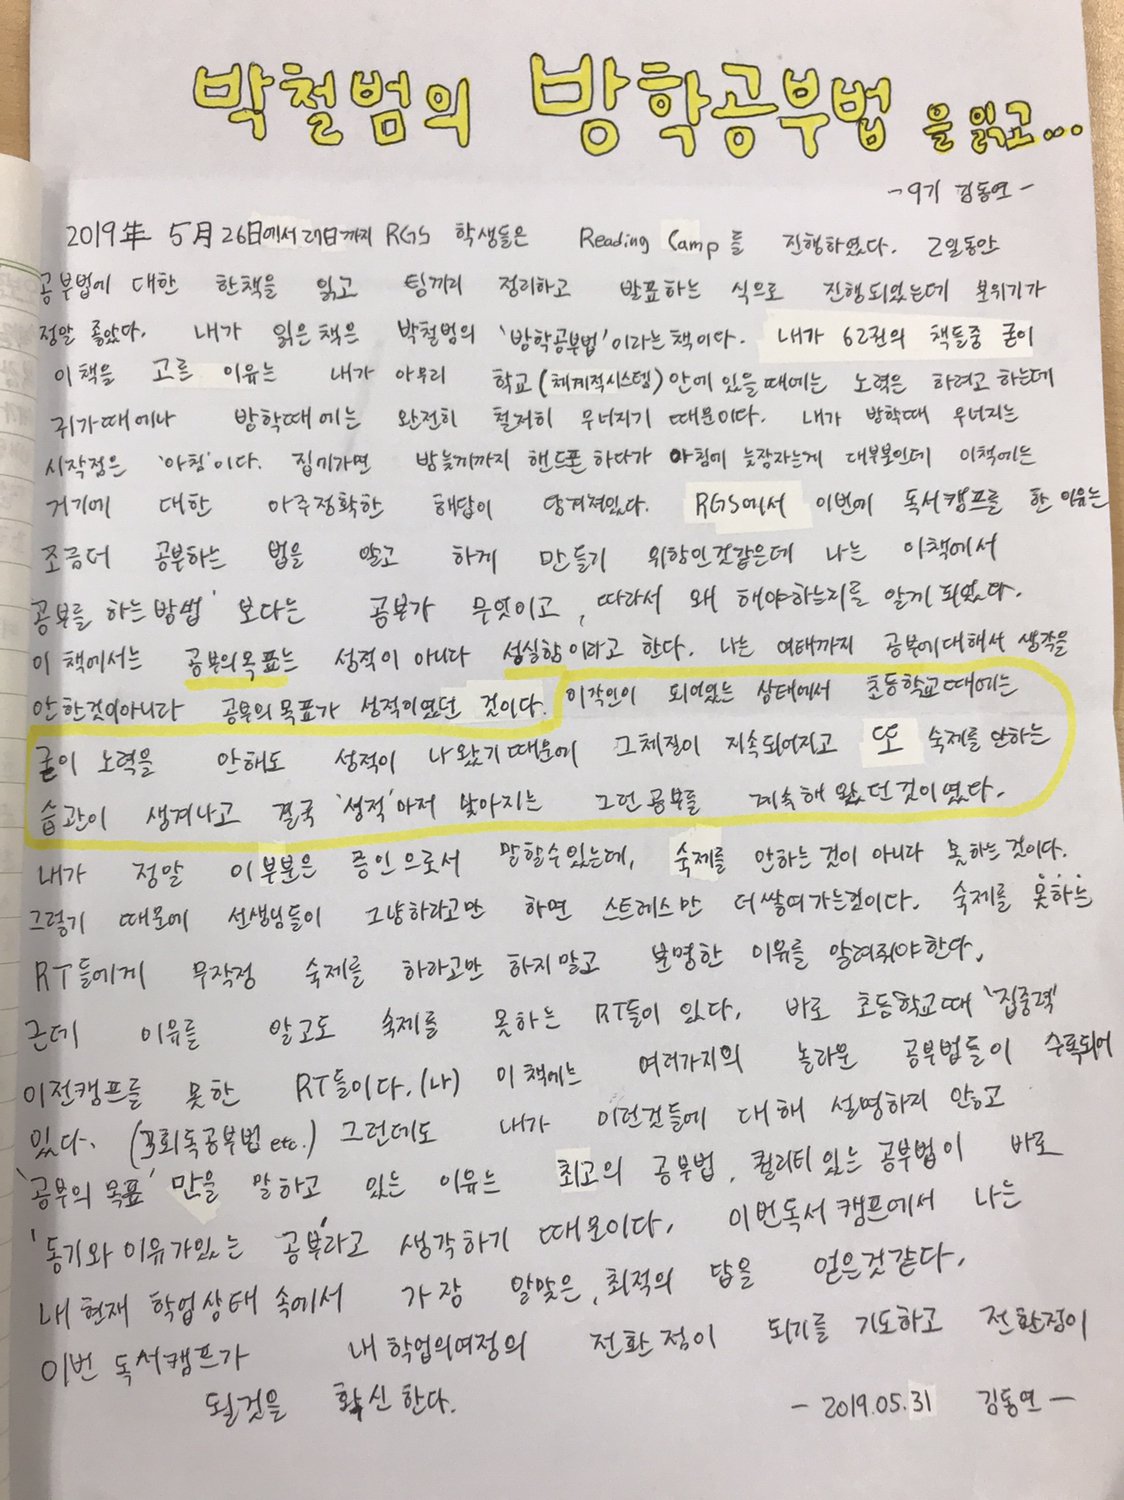 박철범의 방학공부법을 읽고...
- 9기 김동연 -
2019年 5月 26日에서 27日까지 RGS 학생들은 Reading Camp를 진행하였다. 2일동안
공부법에 대한 한책을 읽고 팀끼리 정리하고 발표하는 식으로 진행되었는데 분위기가
정말 좋았다. 내가 읽은 책은 박철범의 '방학공부법'이라는 책이다. 내가 62권의 책들중 굳이
이 책을 고른 이유는 내가 아무리 학교(체계적시스템)안에 있을때에는 노력은 하려고 하는데
귀가때에나 방학때에는 완전히 철저히 무너지기 때문이다. 내가 방학때 무너지는
시작점은 '아침'이다. 집에가면 밤늦게까지 핸드폰 하다가 아침에 늦잠자는게 대부분인데 이책에는
거기에 대한 아주정확한 해답이 담겨져있다. RGS에서 이번에 독서캠프를 한 이유는
조금더 공부하는 법을 알고 하게 만들기 위함인것같은데 나는 이책에서
공부를 하는방법' 보다는 공부가 무엇이고, 따라서 왜 해야하는지를 알게 되었다.
이 책에서는 공부의목표는 성적이 아니다 성실함이라고 한다. 나는 여태까지 공부에대해서 생각을
안한것이아니라 공부의 목표가 성적이였던 것이다. 이각인이 되어있는 상태에서 초등학교때에는
굳이 노력을 안해도 성적이 나왔기때문에 그체질이 지속되어지고 또 숙제를 안하는
습관이 생겨나고 결국 '성적'마저 낮아지는 그런공부를 계속해 왔던것이였다.
내가 정말 이부분은 증인으로서 말할수있는데, 숙제를 안하는 것이 아니라 못하는 것이다.
그렇기 때문에 선생님들이 그냥하라고만 하면 스트레스만 더쌓여가는것이다. 숙제를 못하는
RT들에게 무작정 숙제를 하라고만 하지말고 분명한 이유를 알려줘야한다,
근데 이유를 알고도 숙제를 못하는 RT들이 있다. 바로 초등학교때 '집중력'
이전캠프를 못한 RT들이다.(나) 이 책에는 여러가지의 놀라운 공부법들이 수록되어
있다. (7회독공부법 etc.) 그런데도 내가 이런것들에 대해 설명하지 않고
'공부의 목표' 만을 말하고 있는 이유는 최고의 공부법, 퀄리티 있는 공부법이 바로
'동기와 이유가있는 공부'라고 생각하기 때문이다. 이번독서캠프에서 나는
내 현재 학업상태 속에서 가장 알맞은, 최적의 답을 얻은것같다.
이번 독서캠프가 내 학업의여정의 전환점이 되기를 기도하고 전환점이
될것을 확신한다. - 2019.05.31 김동연 -